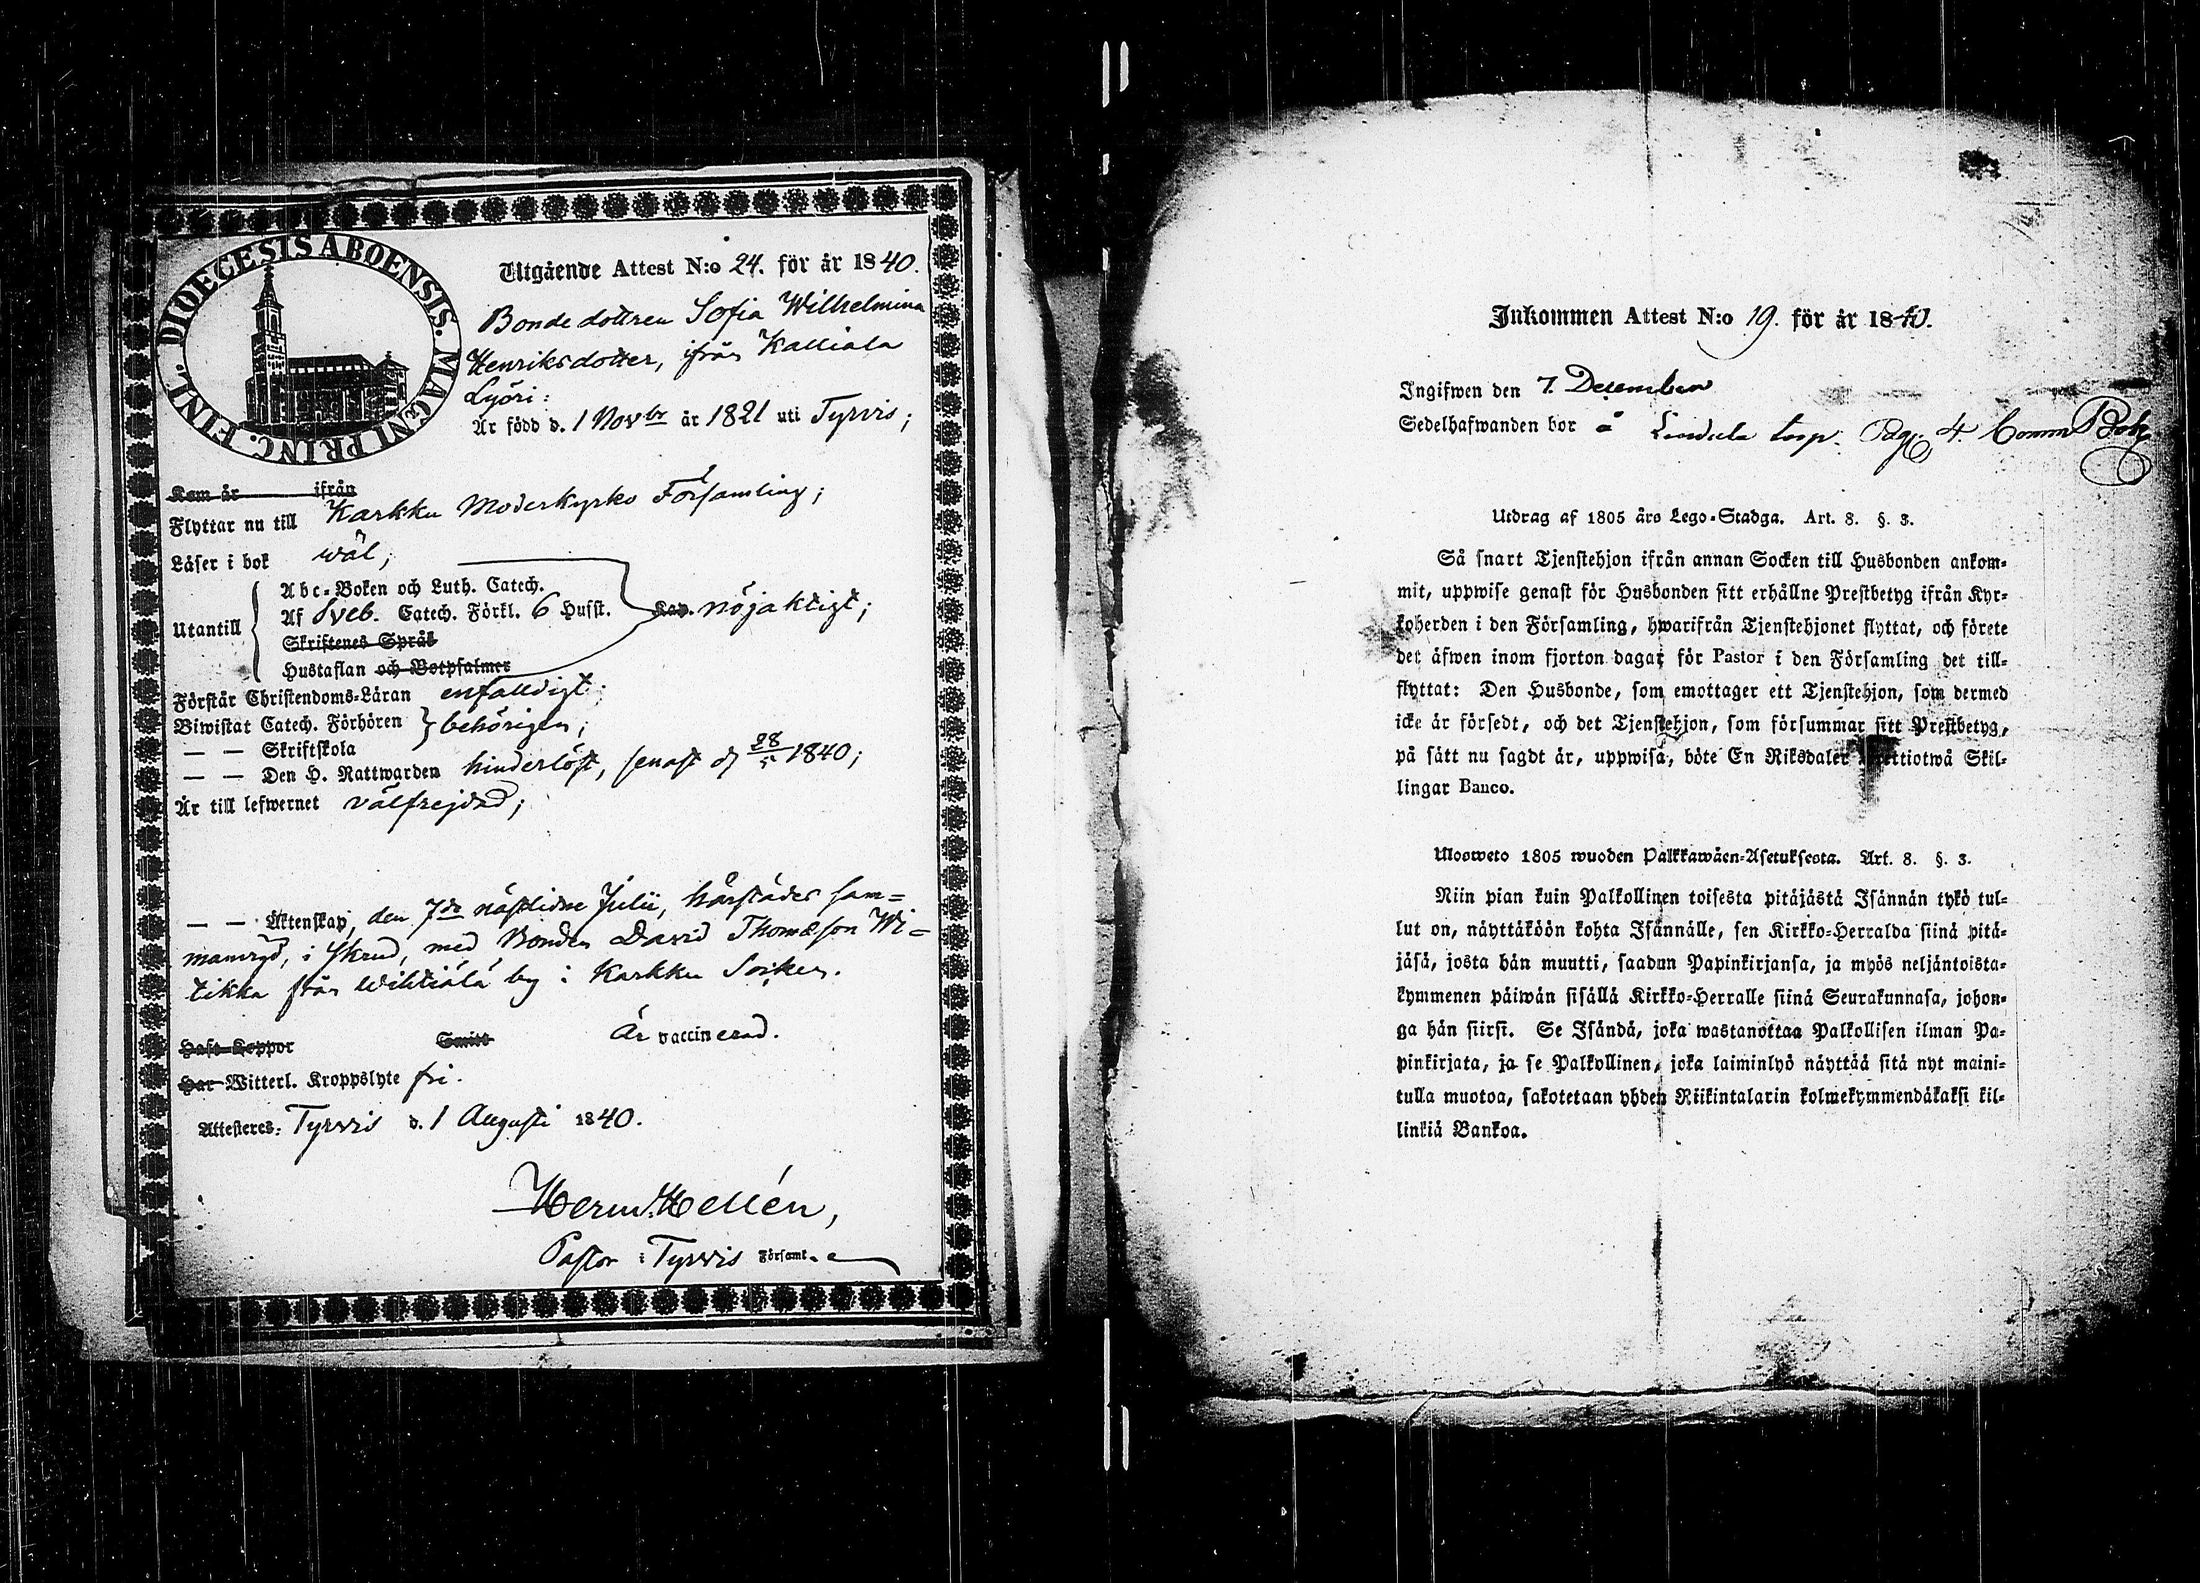 DIOECESIS ABOENSIS. MAGNI PRINC. FINL.
Utgående Attest N:o 24. för år 1840.
Bondedottren Sofia Wilhelmina
Henriksdotter, ifrån Kalliala
Lyöri:
Är född d. 1 Novbr år 1821 uti Tyrvis;
Kom år ifrån
Flyttar nu till Karkku Moderkyrko Församling;
Läser i bok wäl;
Utantill
Abc-Boken och Luth. Catech.
Af Sveb. Catech. Förkl. 6 Hufst. Kap. nöjaktigt;
Skriftenes Språk
Hustaflan och Botpsalmer
Förstår Christendoms-Läran enfalldigt;
Biwistat Catech. Förhören behörigen;
— — Skriftskola
— — Den H. Nattwarden hinderlöst, senast d 28/5 1840;
Är till lefwernet välfrejdad;
— — Äktenskap, den 7de nästlidne Julii, härstädes sam=
manvigd, i Brud, med Bonden David Thomasson Wi=
tikka från Wihtiälä by i Karkku Socken.
Haft Koppor Smitt Är vaccinerad.
Har Witterl. Kroppslyte fri.
Attesteres: Tyrvis d. 1 Augusti 1840.
Herm. Hellén,
Pastor i Tyrvis Församl.
Inkommen Attest N:o 19. för år 1840.
Ingifwen den 7. December
Sedelhafwanden bor å torp. Pag. 4. Comm Bok
Utdrag af 1805 års Lego-Stadga. Art. 8. §. 3.
Så snart Tjenstehjon ifrån annan Socken till Husbonden ankom=
mit, uppwise genast för Husbonden sitt erhållne Prestbetyg ifrån Kyr=
koherden i den Församling, hwarifrån Tjenstehjonet flyttat, och förete
det äfwen inom fjorton dagar för Pastor i den Församling det till=
flyttat: Den Husbonde, som emottager ett Tjenstehjon, som dermed
icke är försedt, och det Tjenstehjon, som försummar sitt Prestbetyg,
på sätt nu sagdt är, uppwisa, böte En Riksdaler trettiotwå Skil=
lingar Banco.
Ulosweto 1805 wuoden Palkkawäen-Asetuksesta. Art. 8. §. 3.
Niin pian kuin Palkollinen toisesta pitäjästä Isännän tykö tul=
lut on, näyttäköön kohta Isännälle, sen Kirkko-Herralda siinä pitä=
jäsä, josta hän muutti, saadun Papinkirjansa, ja myös neljäntoista=
kymmenen päiwän sisällä Kirkko-Herralle siinä Seurakunnasa, johon=
ga hän siirsi. Se Isändä, joka wastanottaa Palkollisen ilman Pa=
pinkirjata, ja se Palkollinen, joka laiminlyö näyttää sitä nyt maini=
tulla muotoa, sakotetaan yhden Riikintalarin kolmekymmendäkaksi kil=
linkiä Bankoa.